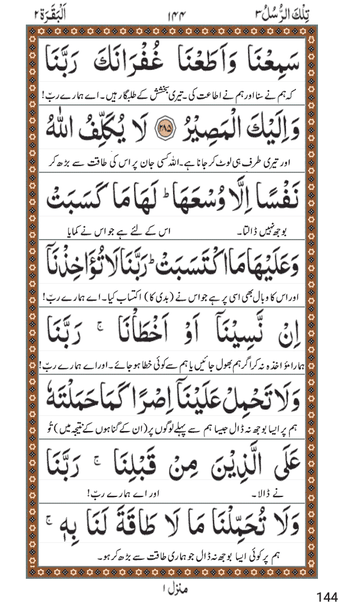 تِلْكَ الرُّسُلُ ٣ ١٤٤ اَلْبَقَرَة ٢
سَمِعْنَا وَاَطَعْنَا غُفْرَانَكَ رَبَّنَا
کہ ہم نے سنا اور ہم نے اطاعت کی۔ تیری بخشش کے طلبگار ہیں۔ اے ہمارے ربّ!
وَاِلَيْكَ الْمَصِيْرُ ﴿٢٨٥﴾ لَا يُكَلِّفُ اللّٰهُ
اور تیری طرف ہی لوٹ کر جانا ہے۔ اللہ کسی جان پر اس کی طاقت سے بڑھ کر
نَفْسًا اِلَّا وُسْعَهَا ؕ لَهَا مَا كَسَبَتْ
بوجھ نہیں ڈالتا۔ اس کے لئے ہے جو اس نے کمایا
وَعَلَيْهَا مَا اكْتَسَبَتْ ؕ رَبَّنَا لَا تُؤَاخِذْنَاۤ
اور اس کا وبال بھی اسی پر ہے جو اس نے (بدی کا) اکتساب کیا۔ اے ہمارے ربّ!
اِنْ نَّسِيْنَاۤ اَوْ اَخْطَاْنَا ۚ رَبَّنَا
ہمارا مؤاخذہ نہ کر اگر ہم بھول جائیں یا ہم سے کوئی خطا ہو جائے۔ اور اے ہمارے ربّ!
وَلَا تَحْمِلْ عَلَيْنَاۤ اِصْرًا كَمَا حَمَلْتَهٗ
ہم پر ایسا بوجھ نہ ڈال جیسا ہم سے پہلے لوگوں پر (ان کے گناہوں کے نتیجہ میں) تُو
عَلَى الَّذِيْنَ مِنْ قَبْلِنَا ۚ رَبَّنَا
نے ڈالا۔ اور اے ہمارے ربّ!
وَلَا تُحَمِّلْنَا مَا لَا طَاقَةَ لَنَا بِهٖ ۚ
ہم پر کوئی ایسا بوجھ نہ ڈال جو ہماری طاقت سے بڑھ کر ہو۔
منزل ١
144